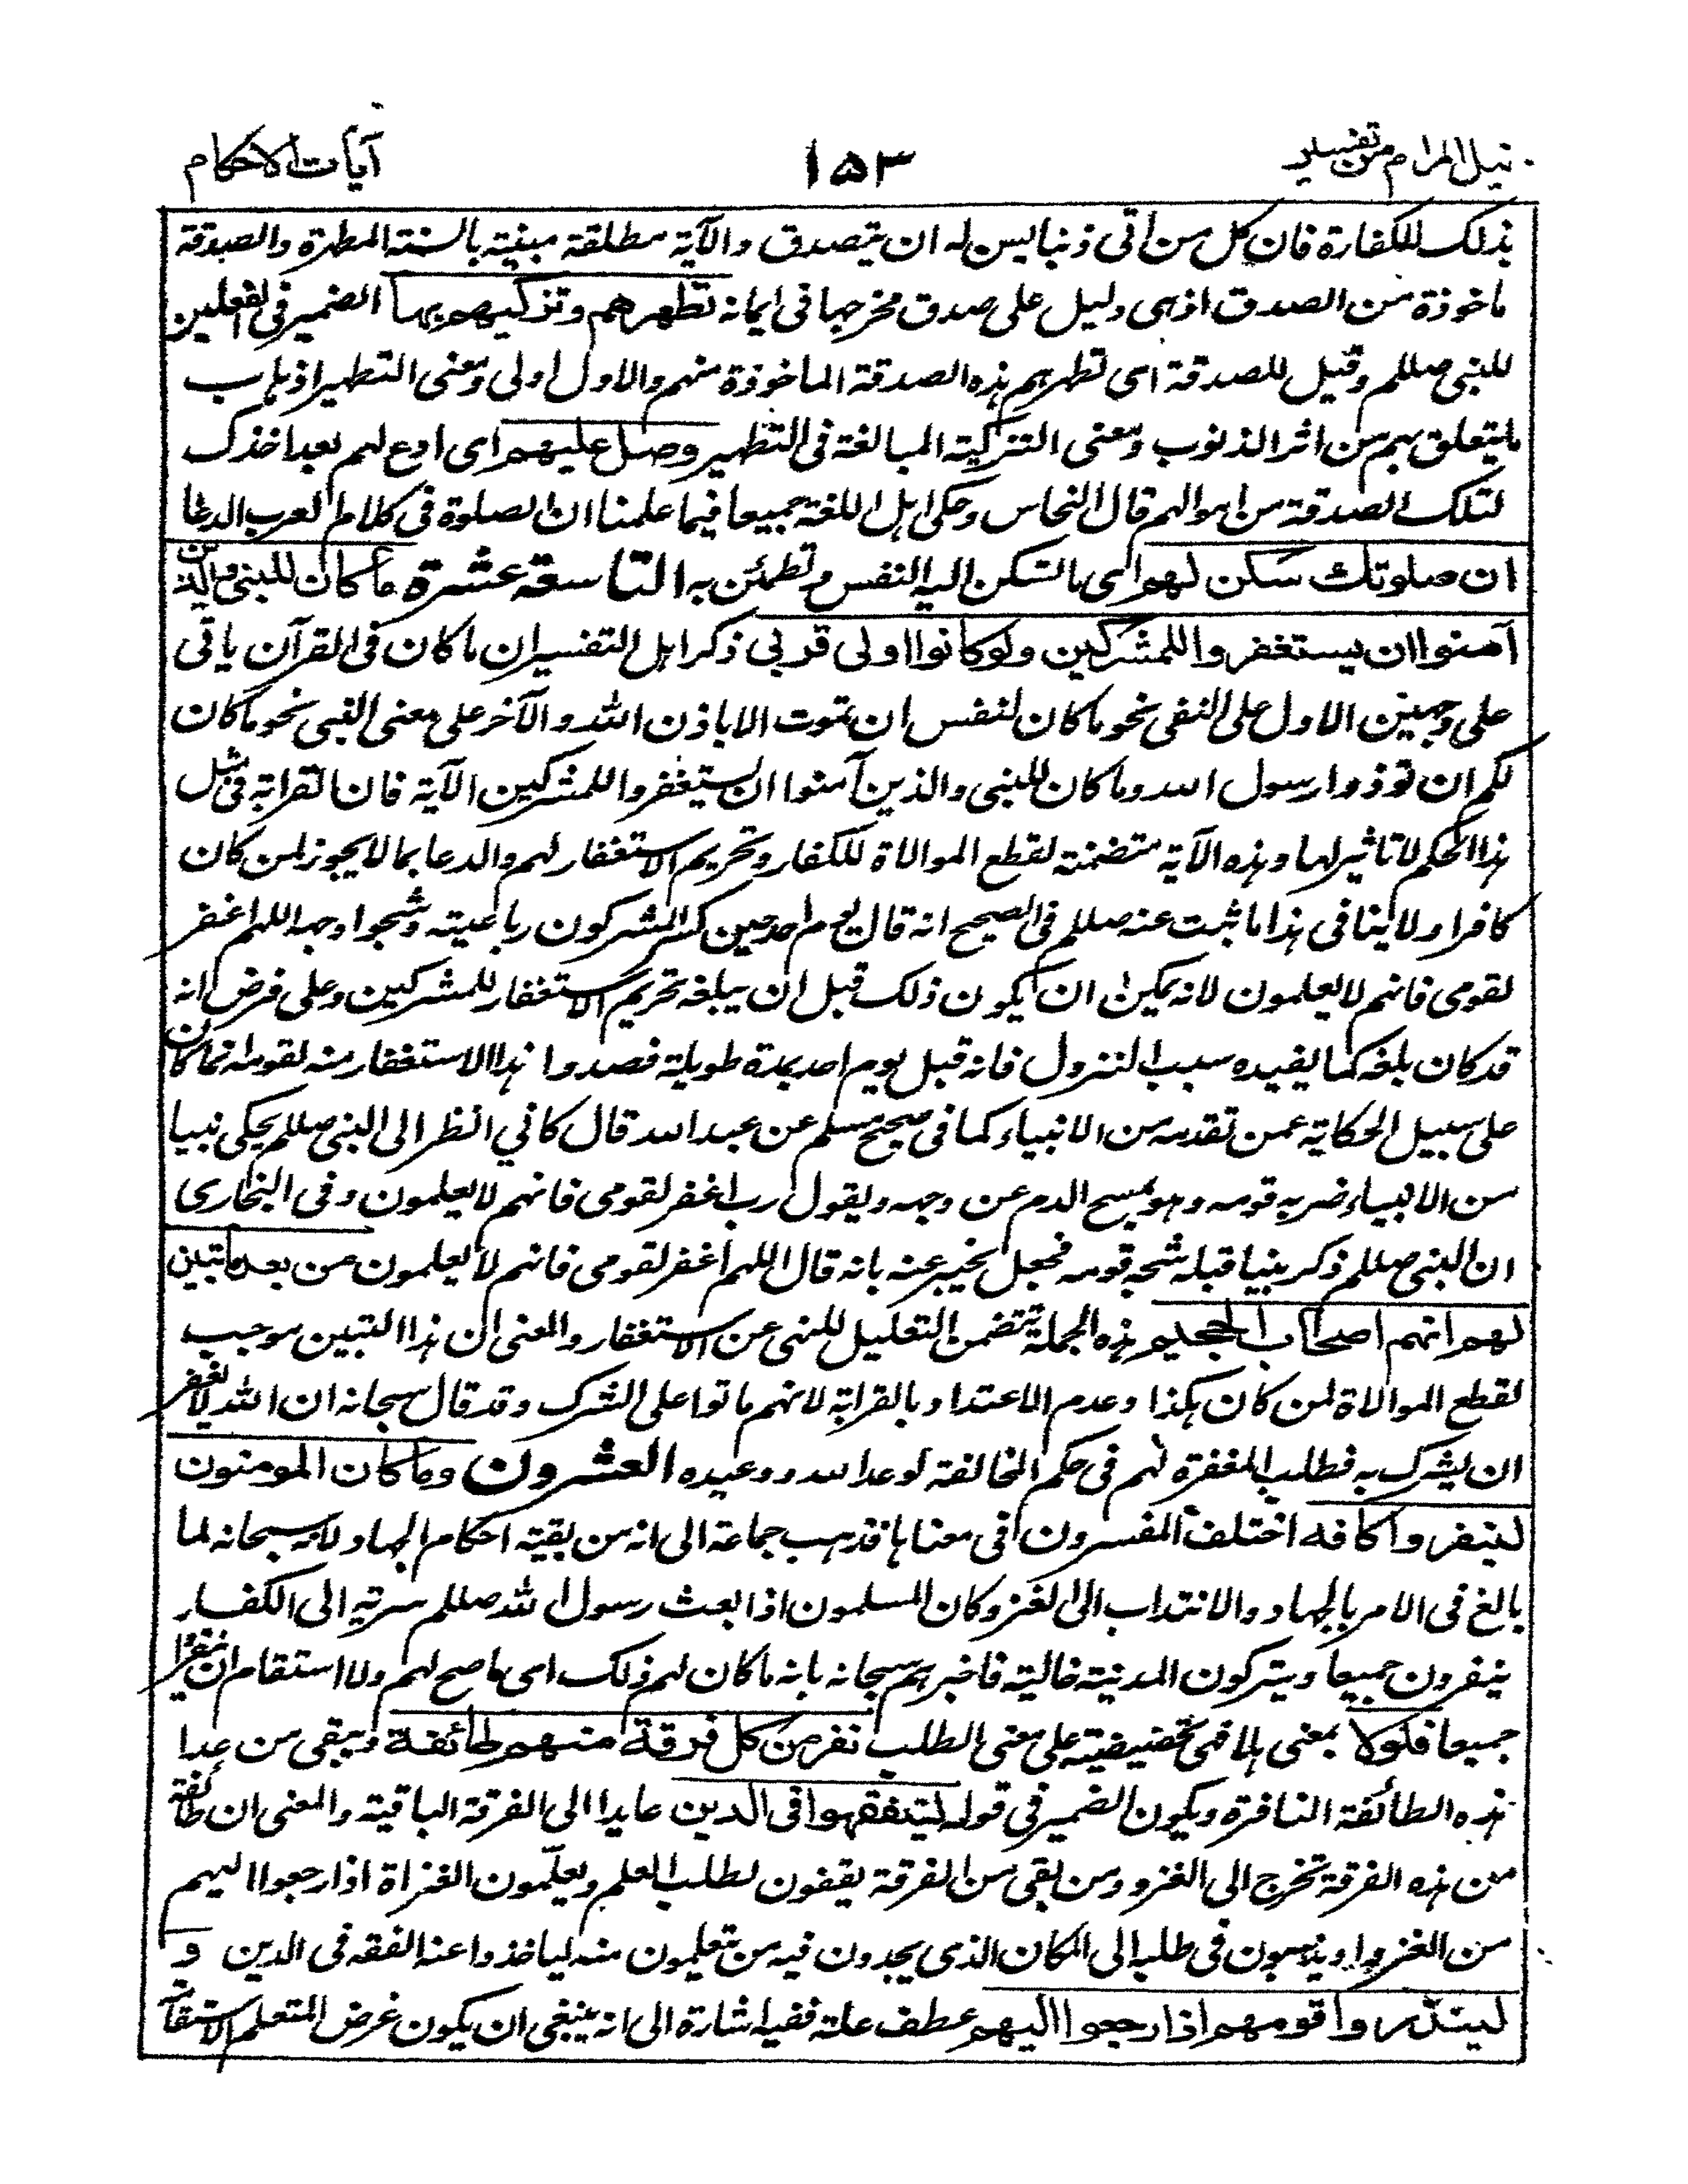 نيل المرام من تفسير
١٥٣
آيات الاحكام
بذلك للكفارة فان كل من اتى ذنبا يسن له ان يتصدق والآية مطلقة مبينة بالسنة المطهرة والصدقة
ماخوذة من الصدق اذ هى دليل على صدق مخرجها فى ايمانه تطهرهم وتزكيهم بها الضمير فى الفعلين
للنبى صللم وقيل للصدقة اى تطهرهم هذه الصدقة الماخوذة منهم والاول اولى ومعنى التطهير اذهاب
ما يتعلق بهم من اثر الذنوب ومعنى التزكية المبالغة فى التطهير وصل عليهم اى ادع لهم بعد اخذك
لتلك الصدقة من اموالهم قال النحاس وحكى اهل اللغة جميعا فيما علمنا ان الصلوة فى كلام العرب الدعا
ان صلوتك سكن لهم اى ما تسكن اليه النفس وتطمئن به التاسعة عشرة ما كان للنبى والذين
آمنوا ان يستغفروا للمشركين ولو كانوا اولى قربى ذكر اهل التفسير ان ما كان فى القرآن ياتى
على وجهين الاول على النفى نحو ما كان لنفس ان تموت الا باذن الله والآخر على معنى النهى نحو ما كان
لكم ان توذوا رسول الله وما كان للنبى والذين آمنوا ان يستغفروا للمشركين الآية فان القرابة فى مثل
هذا الحكم لا تاثير لها وهذه الآية متضمنة لقطع الموالاة للكفار وتحريم الاستغفار لهم والدعا بما لا يجوز لمن كان
كافرا ولا ينافى هذا ما ثبت عنه صللم فى الصحيح انه قال يوم احد حين كسر المشركون رباعيته وشجوا وجهه اللهم اغفر
لقومى فانهم لا يعلمون لانه يمكن ان يكون ذلك قبل ان يبلغه تحريم الاستغفار للمشركين وعلى فرض انه
قد كان بلغه كما يفيده سبب النزول فانه قبل يوم احد بمدة طويلة فصدور هذا الاستغفار منه لقومه انما كان
على سبيل الحكاية عمن تقدمه من الانبياء كما فى صحيح مسلم عن عبد الله قال كانى انظر الى النبى صللم يحكى نبيا
من الانبياء ضربه قومه وهو يمسح الدم عن وجهه ويقول رب اغفر لقومى فانهم لا يعلمون وفى البخارى
ان النبى صللم ذكر نبيا قبله شجه قومه فجعل يخبر عنه بانه قال اللهم اغفر لقومى فانهم لا يعلمون من بعد ما تبين
لهم انهم اصحاب الجحيم هذه الجملة تتضمن التعليل للنهى عن الاستغفار والمعنى ان هذا التبين موجب
لقطع الموالاة لمن كان هكذا وعدم الاعتداد بالقرابة لانهم ماتوا على الشرك وقد قال سبحانه ان الله لا يغفر
ان يشرك به فطلب المغفرة لهم فى حكم المخالفة لوعد الله ووعيده العشرون وما كان المومنون
لينفروا كافة اختلف المفسرون فى معناها فذهب جماعة الى انه من بقية احكام الجهاد لانه سبحانه لما
بالغ فى الامر بالجهاد والانتداب الى الغزو كان المسلمون اذا بعث رسول الله صللم سرية الى الكفار
ينفرون جميعا ويتركون المدينة خالية فاخبرهم سبحانه بانه ما كان لهم ذلك اى ما صح لهم ولا استقام ان ينفروا
جميعا فلولا بمعنى هلا فهى تحضيضية على معنى الطلب نفر من كل فرقة منهم طائفة ويبقى من عدا
هذه الطائفة النافرة ويكون الضمير فى قوله ليتفقهوا فى الدين عايدا الى الفرقة الباقية والمعنى ان طائفة
من هذه الفرقة تخرج الى الغزو ومن بقى من الفرقة يقفون لطلب العلم ويعلّمون الغزاة اذا رجعوا اليهم
من الغزو او يذهبون فى طلبه الى المكان الذى يجدون فيه من يتعلمون منه لياخذوا عنه الفقه فى الدين و
لينذروا قومهم اذا رجعوا اليهم عطف علته ففيه اشارة الى انه ينبغى ان يكون غرض المتعلم الاستقامة